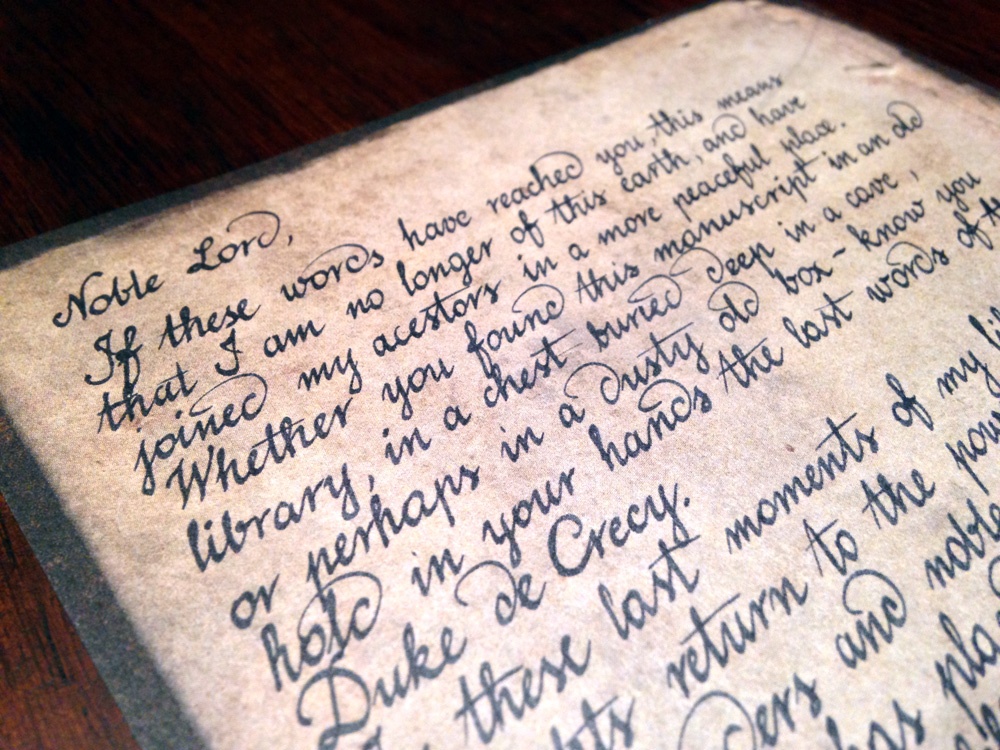 Noble Lord,
If these words have reached you, this means
that I am no longer of this earth, and have
joined my acestors in a more peaceful place.
Whether you found this manuscript in an old
library, in a chest buried deep in a cave,
or perhaps in a dusty old box - know you
hold in your hands the last words of
Duke de Crecy.
these last moments of my
return to the
and noble